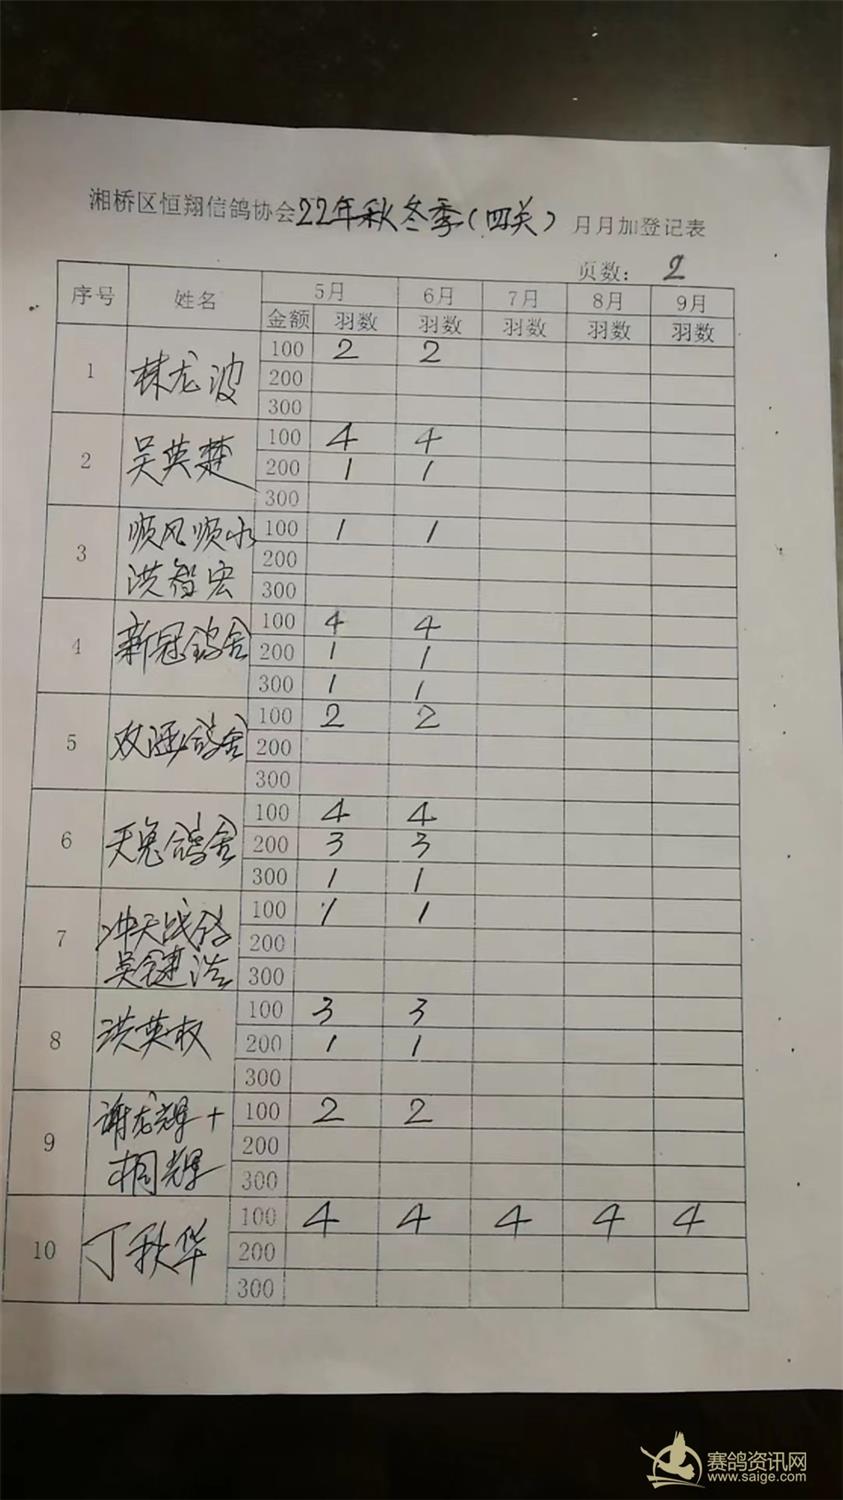 湘桥区恒翔信鸽协会22年秋冬季(四关)月月加登记表
页数: 2
序号 姓名 5月 6月 7月 8月 9月
金额 羽数 羽数 羽数 羽数 羽数
1 林龙波 100 2 2
200
300
2 吴英楚 100 4 4
200 1 1
300
3 顺风顺水 100 1 1
洪智宏 200
300
4 新冠鸽舍 100 4 4
200 1 1
300 1 1
5 双涵鸽舍 100 2 2
200
300
6 天兔鸽舍 100 4 4
200 3 3
300 1 1
7 冲天战鸽 100 1 1
吴键浩 200
300
8 洪英权 100 3 3
200 1 1
300
9 谢龙辉+ 100 2 2
桐辉 200
300
10 丁秋华 100 4 4 4 4 4
200
300
赛鸽资讯网
www.saige.com